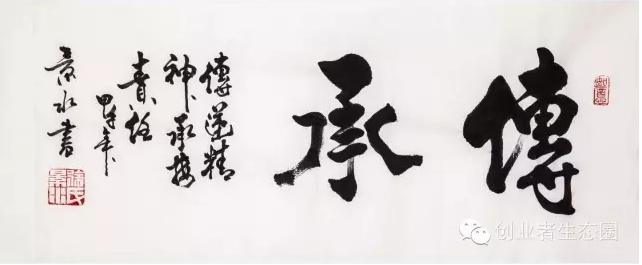 傳承
傳遞精
神承接
責任
甲午年
景水書
创业者生态圈